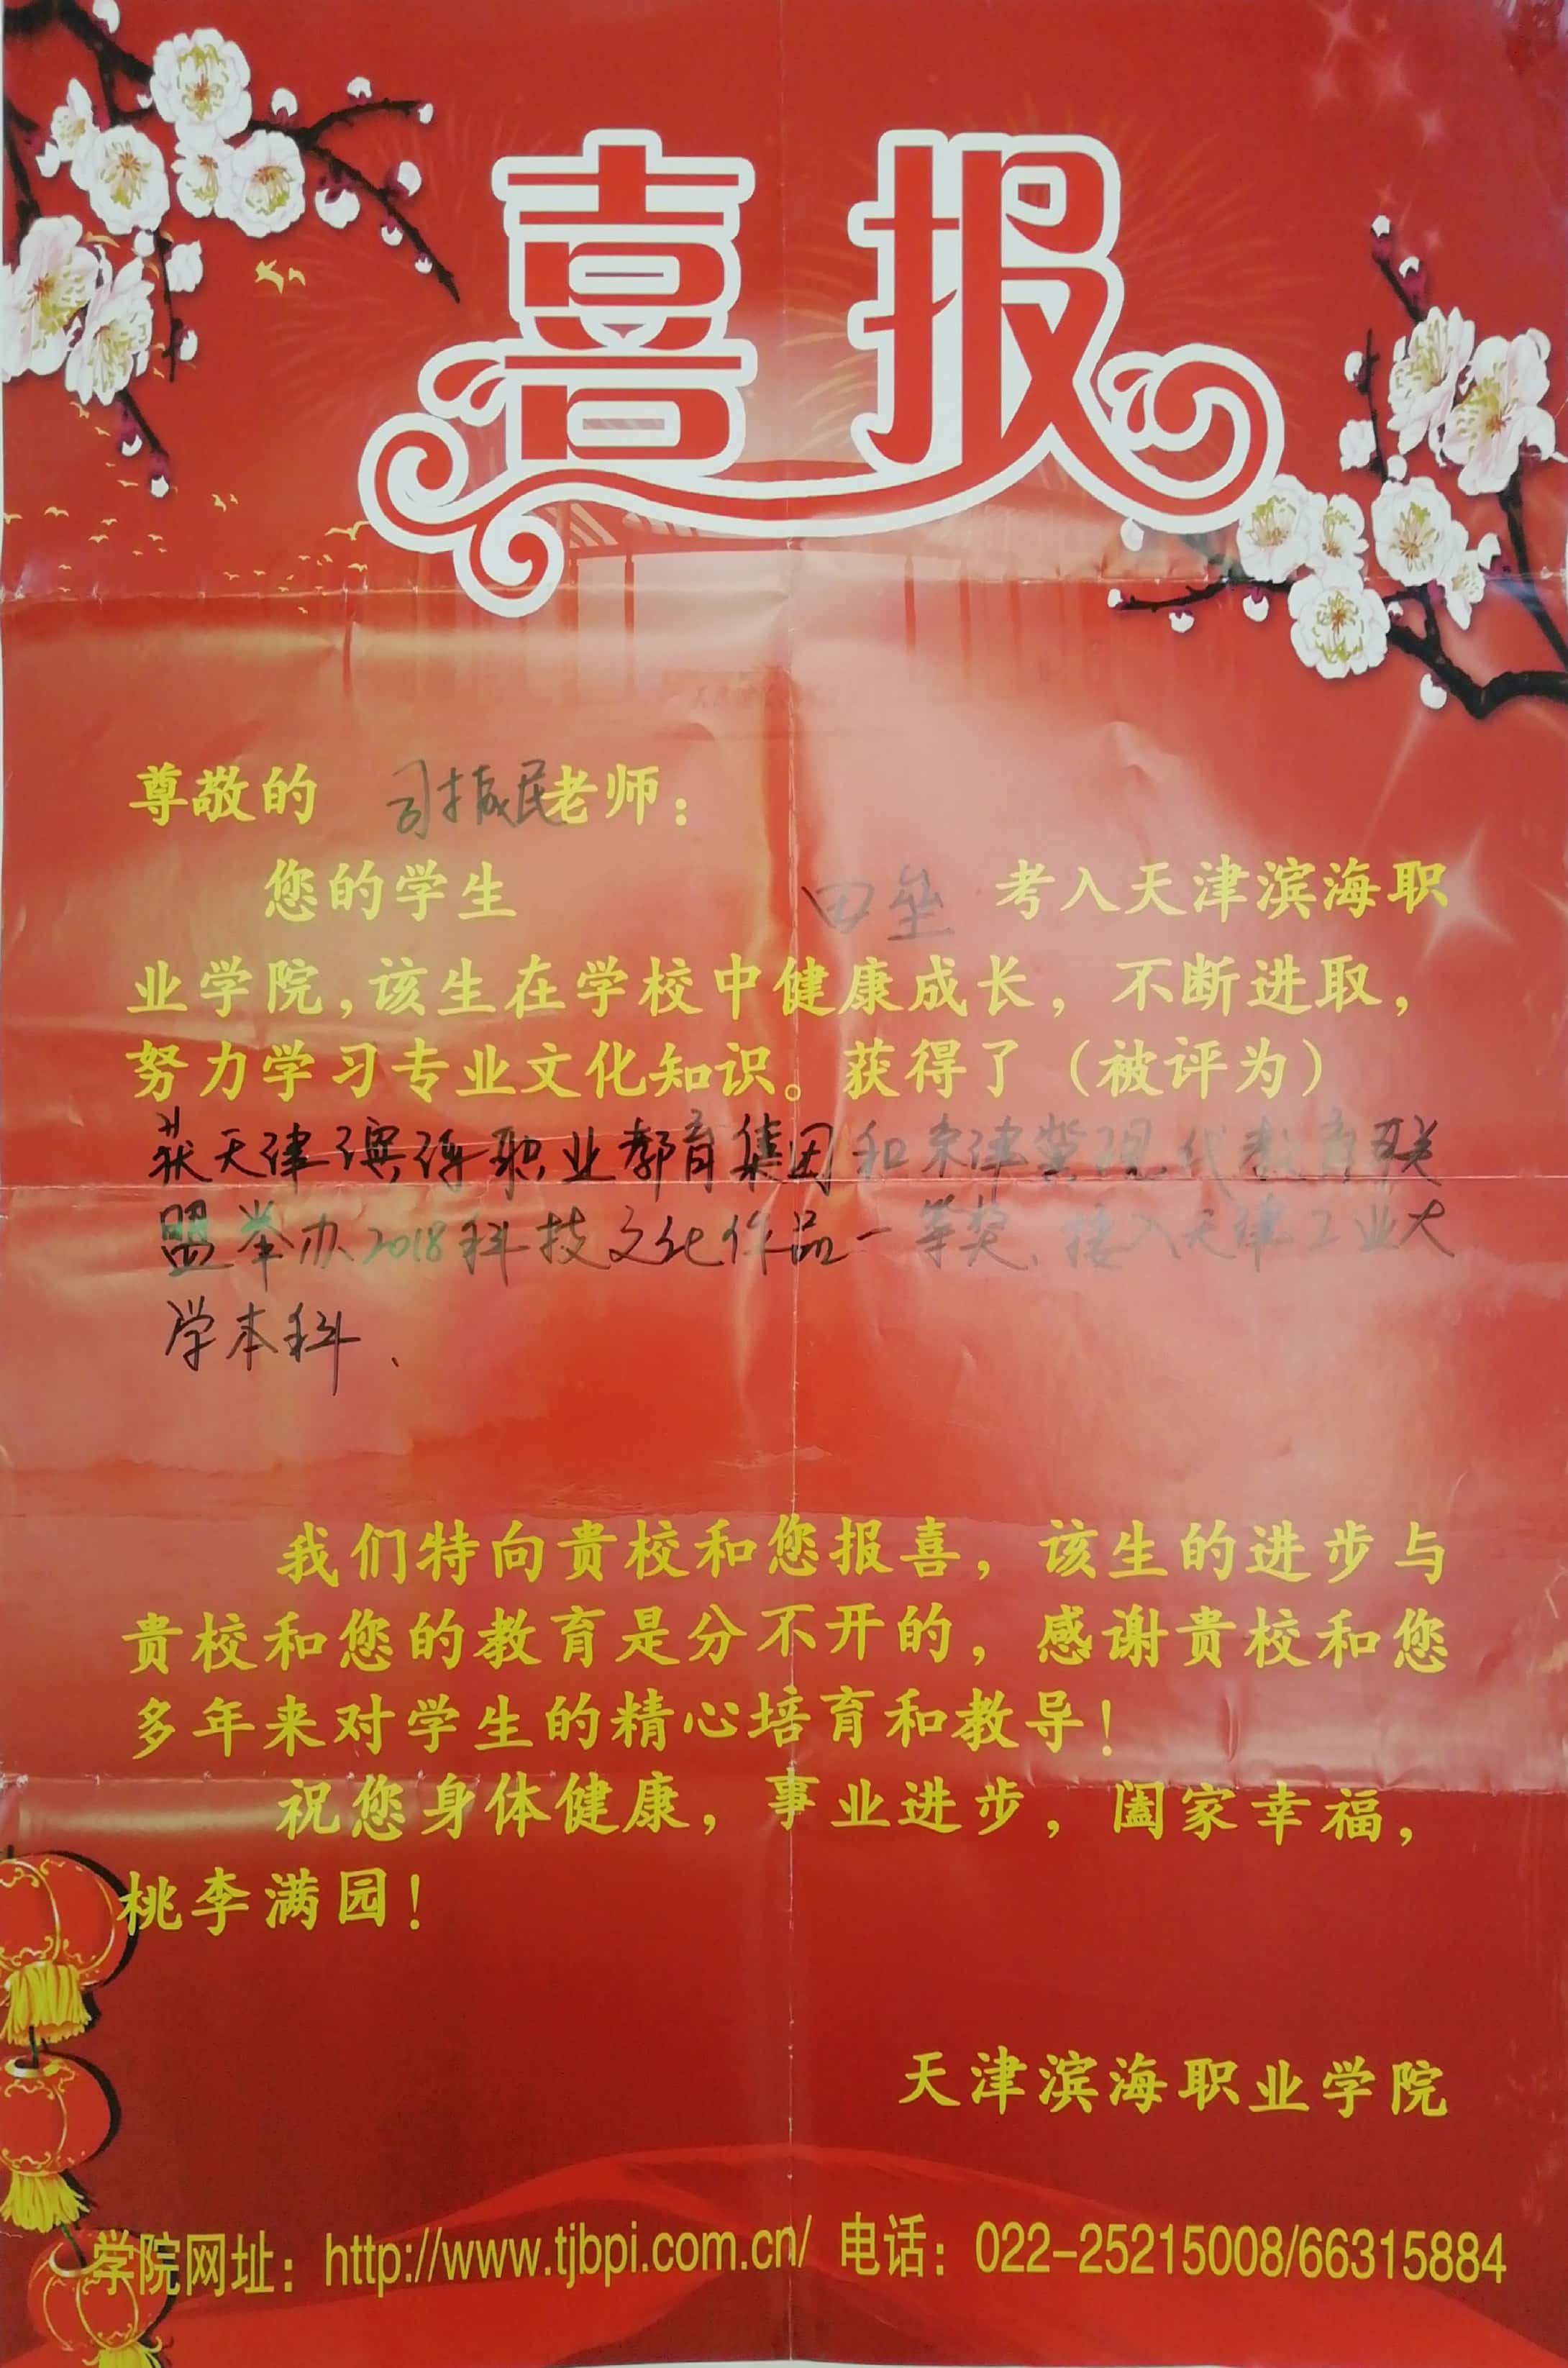 喜报
尊敬的 司 民老师：
您的学生 田垒 考入天津滨海职
业学院，该生在学校中健康成长，不断进取，
努力学习专业文化知识。获得了（被评为）
获天津滨海职业教育集团和京津冀现代教育联
盟举办2018科技文化作品一等奖、接入天津工业大
学本科、
我们特向贵校和您报喜，该生的进步与
贵校和您的教育是分不开的，感谢贵校和您
多年来对学生的精心培育和教导！
祝您身体健康，事业进步，阖家幸福，
桃李满园！
天津滨海职业学院
学院网址：http://www.tjbpi.com.cn/ 电话：022-25215008/66315884